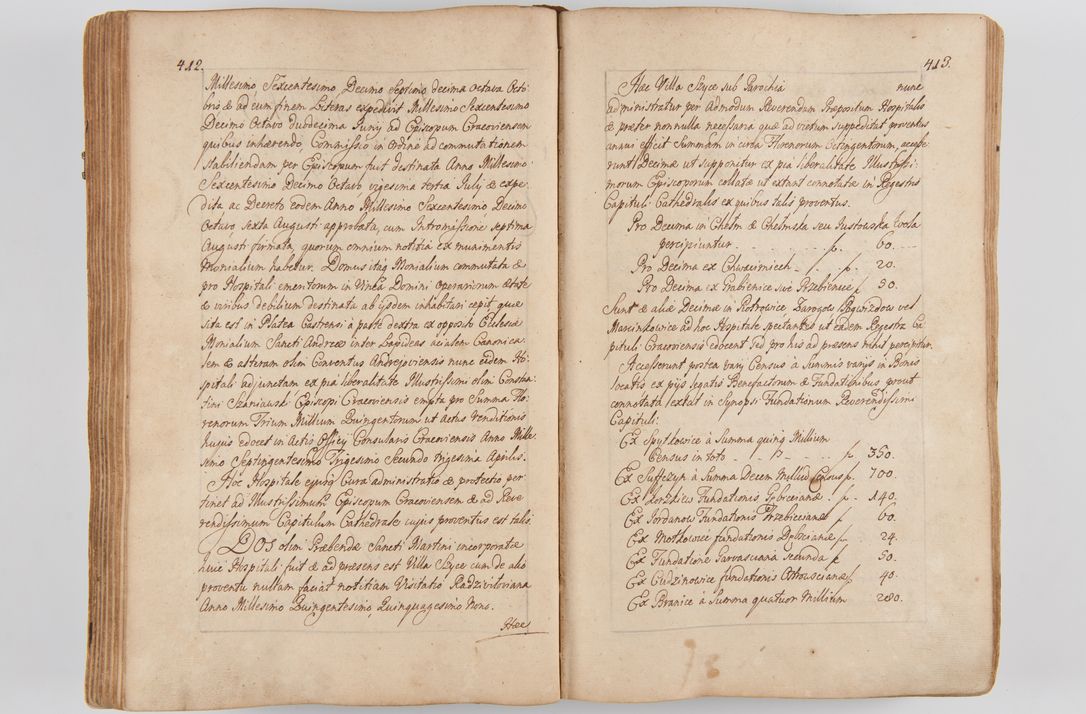 412.
Millesimo Sexcentesimo Decimo Septimo decima octava Octo-
bris & ad eum finem Literas expedivit Millesimo Sexcentesimo
Decimo Octavo duodecima Juny ad Episcopum Cracoviensem
quibus inhærendo, Commissio in Ordine ad commutationem
stabiliendam per Episcopum fuit destinata Anno Millesimo
Sexcentesimo Decimo Octavo vigesima tertia Julij & expe-
dita ac Decreto eodem Anno Millesimo Sexcentesimo Decimo
Octavo Sexta Augusti approbata, cum Intromissione septima
Augusti firmata, quorum omnium notitia ex munimentis
Monialium habetur. Domus itaq Monialium commutata &
pro Hospitali emeritorum in Vinea Domini operariorum ætate
& viribus debilium destinata ab ijsdem inhabitari cepit quæ
sita est in Platea Castrensi a parte dextra ex opposito Ecclesiæ
Monialium Sancti Andreæ inter Lapideas acialem Canonica-
lem & alteram olim Conventus Andrejoviensis nunc eidem Ho-
spitali adjunctam ex pia liberalitate Illustrissimi olim Constan-
tini Szaniawski Episcopi Cracoviensis empta pro Summa Flo-
renorum Trium Millium Quingentorum ut actus venditionis
hujus edocet in Actis Officy Consularis Cracoviensis Anno Mille-
simo Septingentesimo Trigesimo Secundo trigesima Aprilis.
Hoc Hospitale ejusq Cura administratio & protectio per-
tinet ad Illustrissimum Episcopum Cracoviensem & ad Reve-
rendissimum Capitulum Cathedrale cujus proventus est talis.
DOS olim Præbendæ Sancti Martini incorporatæ
huic Hospitali fuit & ad præsens est Villa Szyce cum de alio
proventu nullam faciat notitiam Visitatio Radziviliana
Anno Millesimo Quingentesimo Quinquagesimo Nono.
Hæc
413.
Hæc Villa Szyce sub Parochia nunc
administratur per Admodum Reverendum Præpositum Hospitalis
& præter nonnulla necessaria quæ ad victum suppeditat proventus
annuus efficit Summam in circa Florenorum Octingentorum, accesse-
runt Decimæ ut supponitur ex pia liberalitate Illustrissi-
morum Episcoporum collatæ ut extant connotatæ in Regestris
Capituli Cathedralis ex quibus talis proventus.
Pro Decima in Chełm & Chełmska seu Justowska Wola
percipiuntur - - - - - f. 60.
Pro Decima ex Chwacimiech - f. f. 20.
Pro Decima ex Grabienice sive Przebienice f 30.
Sunt & aliæ Decimæ in Piotrowice Zarogow Pogwizdow vel
Marcinkowice ad hoc Hospitale spectantes ut eadem Regestra Ca-
pituli Cracoviensis docent sed pro his ad præsens nihil percipitur.
Accesserunt postea varij Census à Summis varijs in Bonis
locatis ex pijs Legatis Benefactorum & Fundationibus prout
connotata extat in Synopsi Fundationum Reverendissimi
Capituli.
Ex Spytkowice à Summa quinq Millium
Census in toto - - - - - f. 350.
Ex Sufczyn à Summa Decem Millium Census f. 700.
Ex Korzkiew Fundationis Gębicianæ f. 140.
Ex Jordanow Fundationis Trzebiccianæ f. 60.
Ex Motkowice fundationis Dębscianæ f. 24.
Ex Fundatione Sarvasciana secunda f. 50.
Ex Gudzinowice fundationis Otrousciana f. 40.
Ex Branice à Summa quatuor Millium 280.